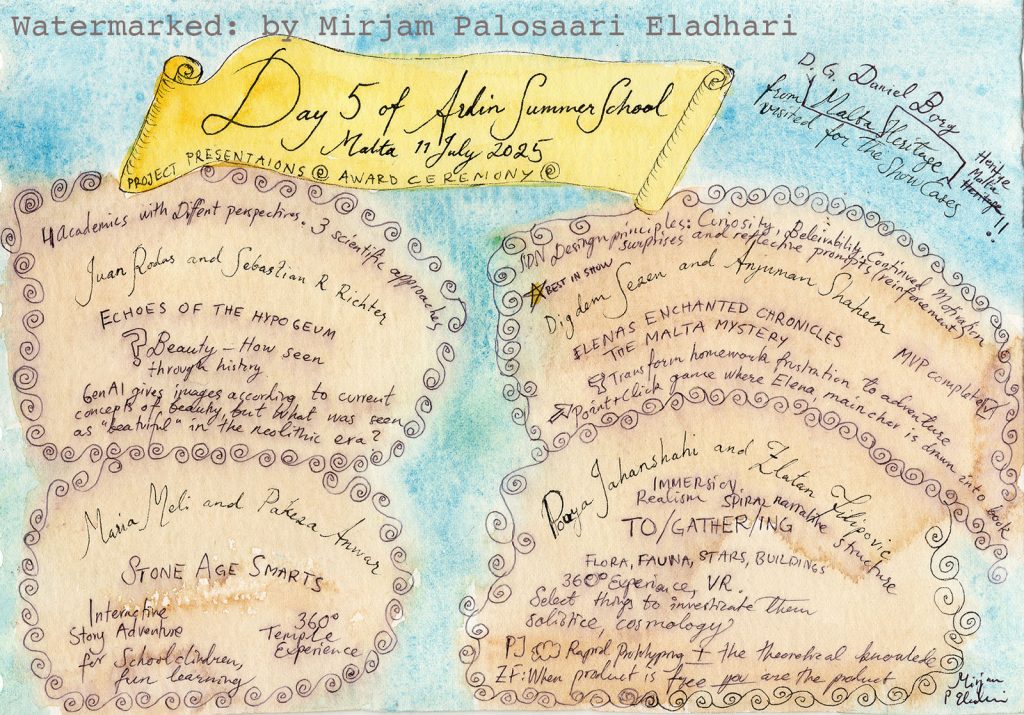 Watermarked: by Mirjam Palosaari Eladhari
Day 5 of Ardin Summer School
Malta 11 July 2025
PROJECT PRESENTAIONS @ AWARD CEREMONY @
D. G. Daniel Borg
from Malta Heritage
visited for the Show Cases
Heritge
Malta
Heritage!!
4 Academics with Diffent perspectives. 3 scientific approaches
Juan Rodas and Sebastian R Richter
ECHOES OF THE HYPOGEUM
? Beauty – How seen
through history
GenAI gives images according to current
concepts of beauty, but what was seen
as "beatyful" in the neolithic era?
IDN Desingn principles: Curiosity, Beleivability, Continued Motivation
surprises and reflective prompts (reinforcement)
BEST IN SHOW
Digdem Sezen and Anjuman Shaheen
ELENAS ENCHANTED CHRONICLES
THE MALTA MYSTERY
MVP completed
Transform homework frustration to adventure
Point+Click game where Elena, main char is drawn into book
Maria Meli and Pakeza Anwar
STONE AGE SMARTS
Interactive
Story Adventure
for Schoolclindren,
fun learning
360°
Temple
Experience
Pooya Jahanshahi and Zlatan Filipovic
IMMERSION,
Realism SPIRAL narrative structure
TO/GATHER/ING
FLORA, FAUNA, STARS, BUILDINGS
360° Experience, VR.
Select things to investigate them
solistice, cosmology
PJ Rapid Prototyping + the theoretical knowlede
ZF: When product is free you are the product
Mirjam
P Eladhari